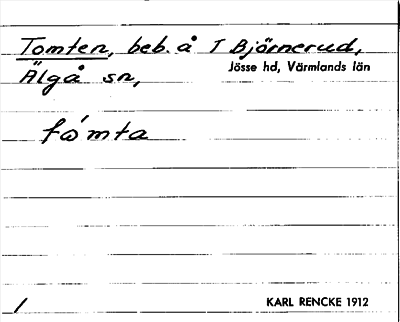 Tomten, beb. å T Björnerud,
Älgå sn,
Jösse hd, Värmlands län
tω´mta
/
KARL RENCKE 1912